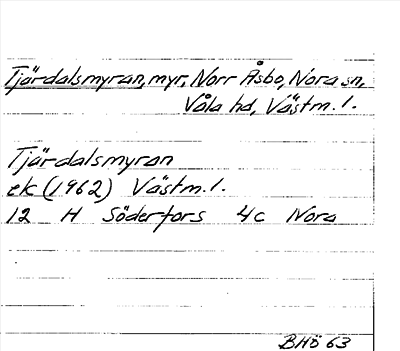 Tjärdalsmyran, myr, Norr Åsbo, Nora sn,
Våla hd, Västm. l.
Tjärdalsmyran
ek (1962) Västm. l.
12 H Söderfors 4c Nora
BHö 63